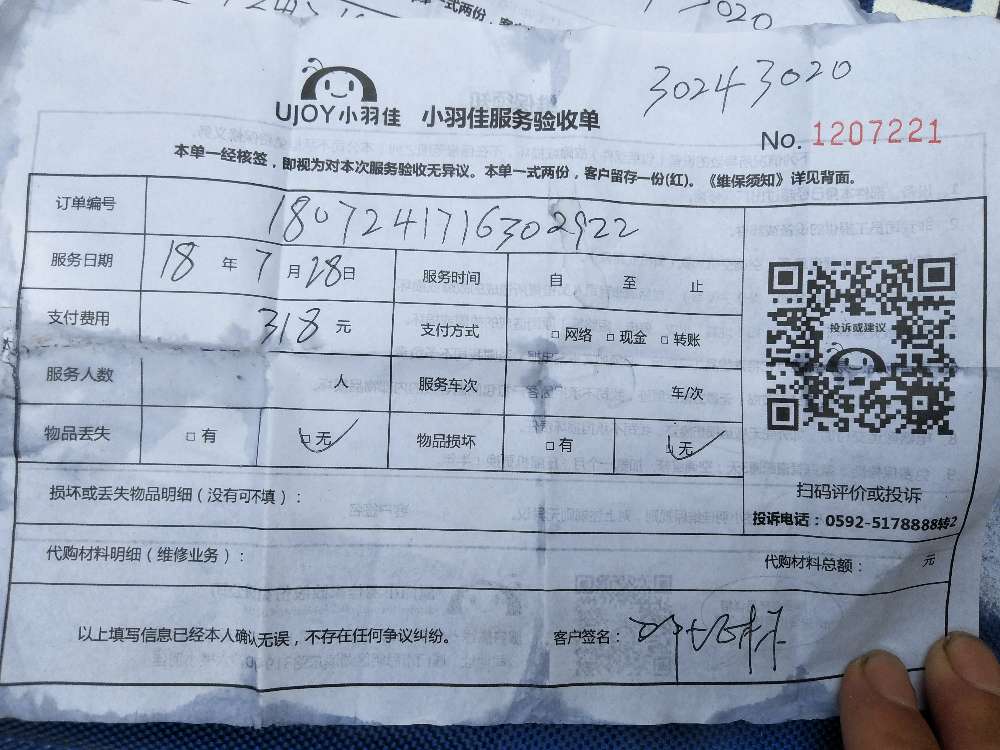 式两份，客
3020
30243020
UJOY小羽佳 小羽佳服务验收单
No. 1207221
本单一经核签，即视为对本次服务验收无异议。本单一式两份，客户留存一份(红)。《维保须知》详见背面。
订单编号 1807241716302922
服务日期 18 年 7 月 28 日 服务时间 自 至 止
支付费用 318 元 支付方式 □ 网络 □ 现金 □ 转账
服务人数 人 服务车次 车/次
物品丢失 □ 有 □ 无 ✓ 物品损坏 □ 有 □ 无 ✓
投诉或建议
扫码评价或投诉
投诉电话：0592-5178888转2
损坏或丢失物品明细（没有可不填）：
代购材料明细（维修业务）： 代购材料总额： 元
以上填写信息已经本人确认无误，不存在任何争议纠纷。 客户签名：